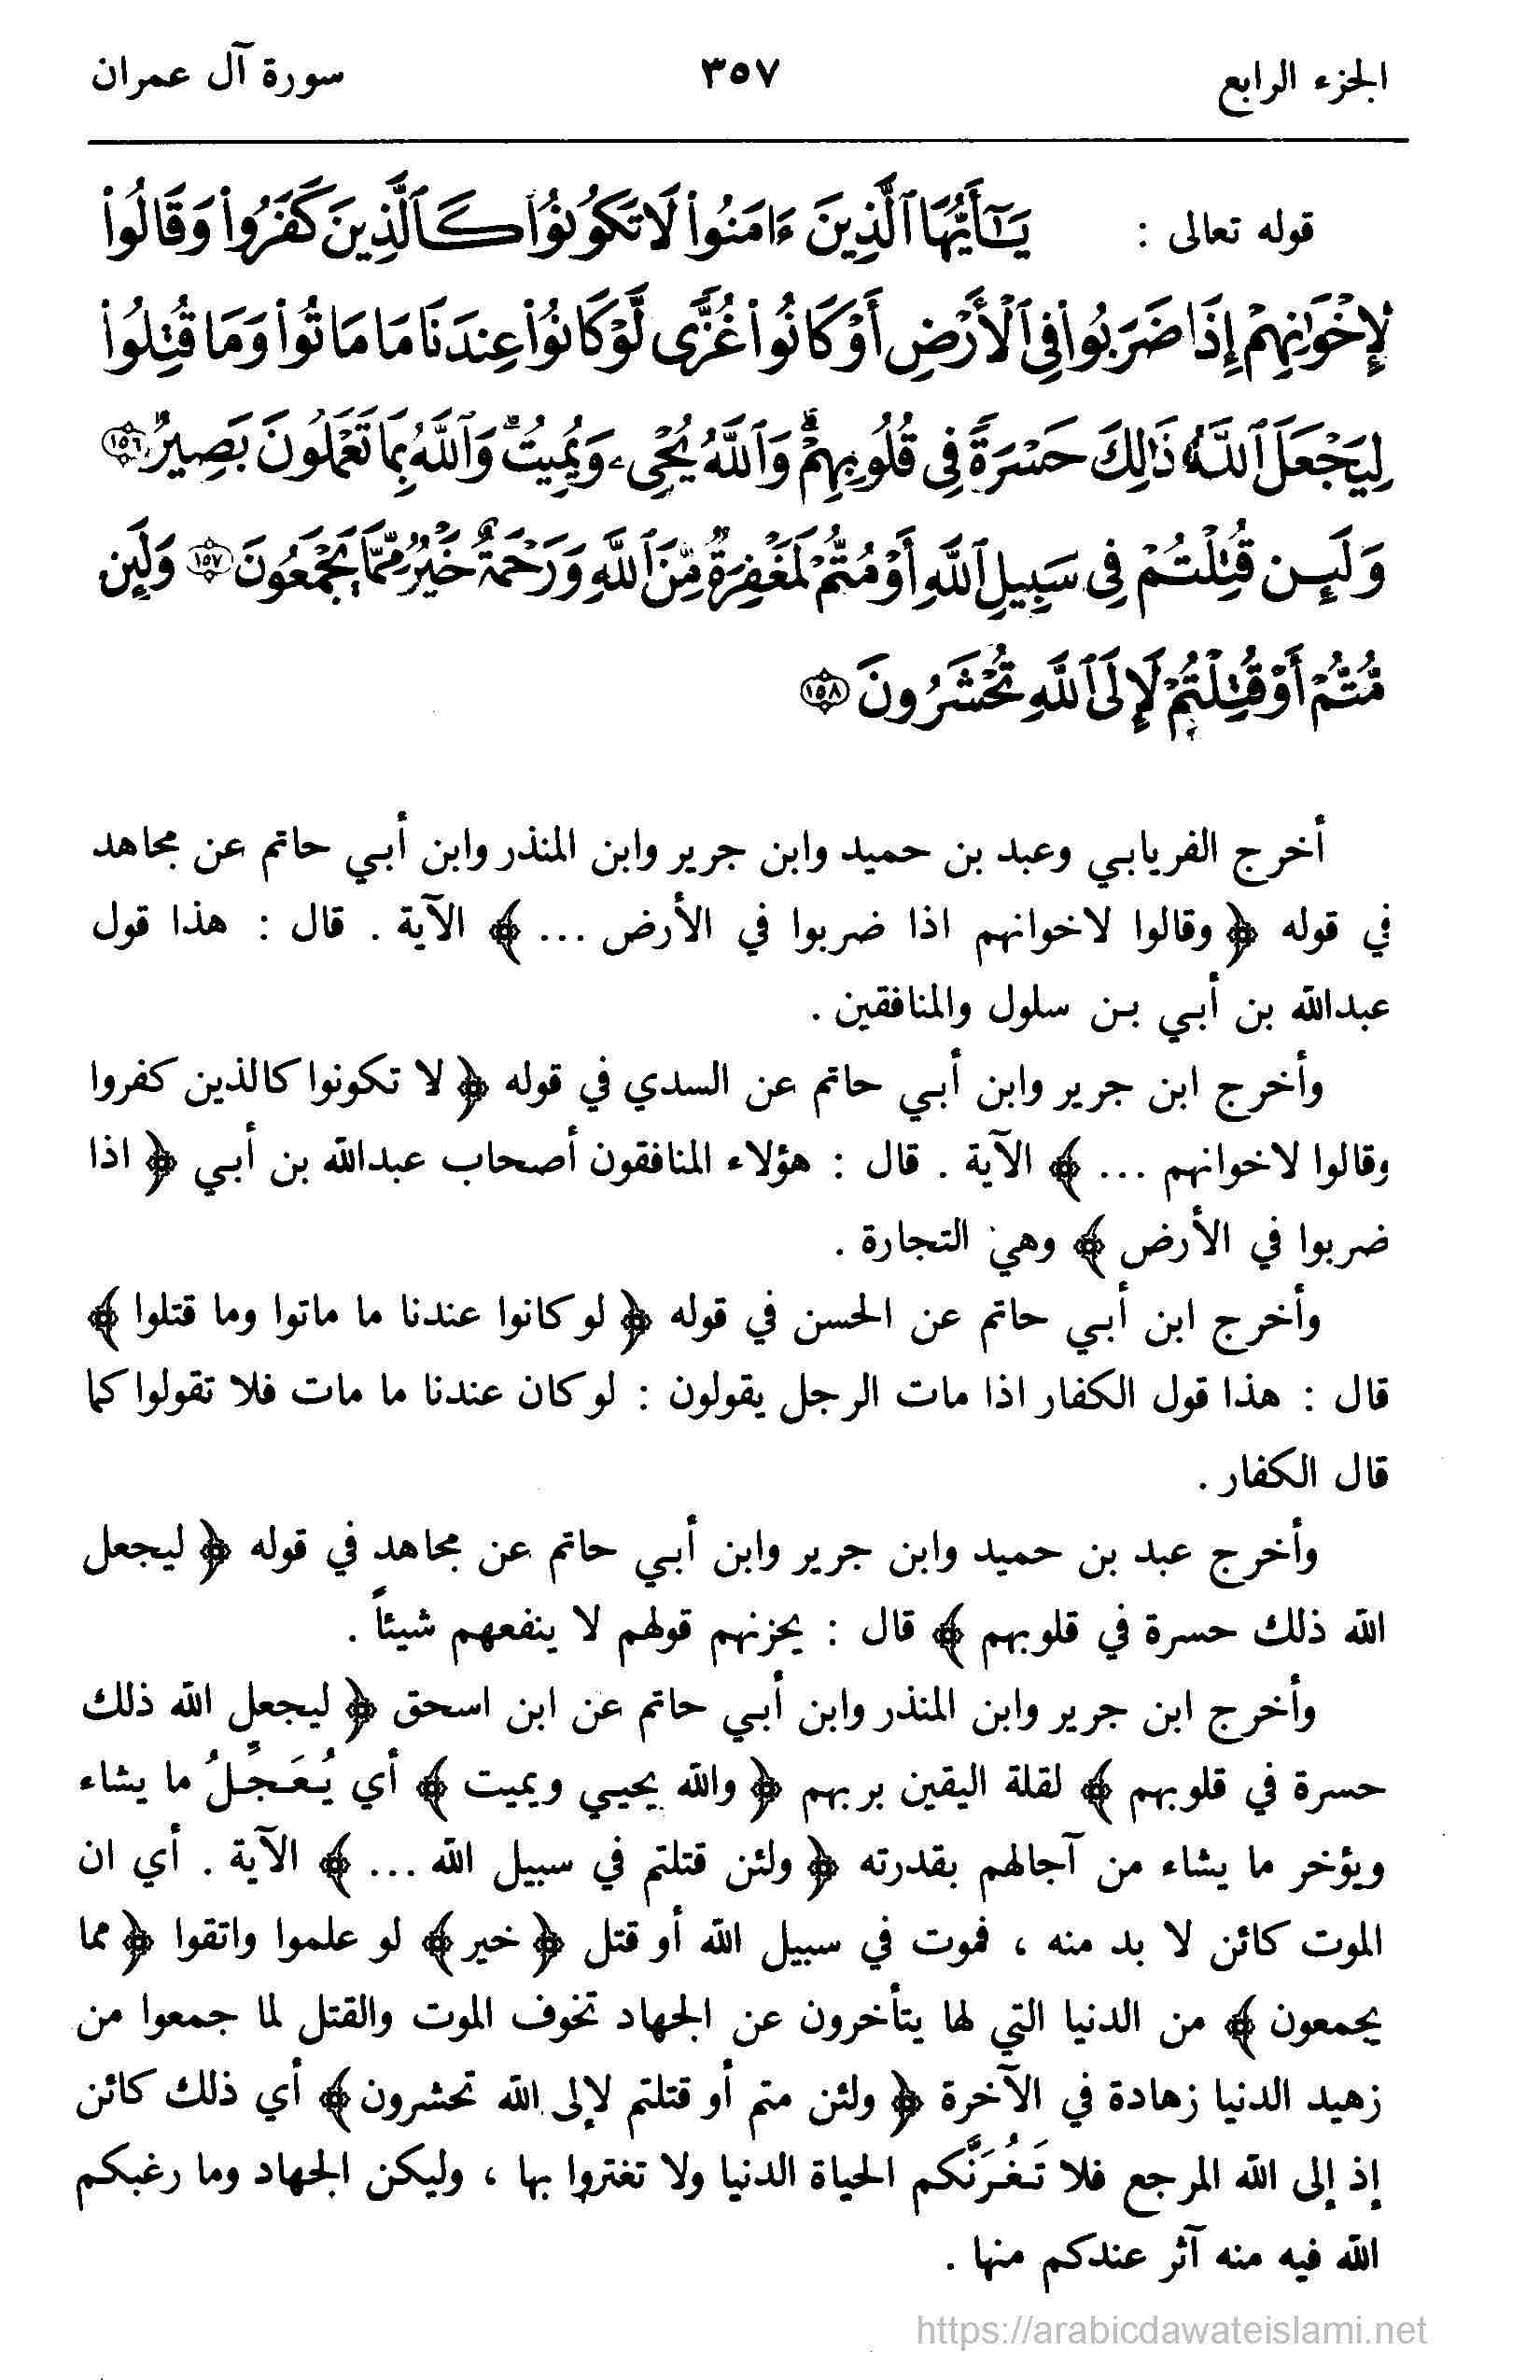 الجزء الرابع ٣٥٧ سورة آل عمران
قوله تعالى : يَـٰٓأَيُّهَا ٱلَّذِينَ ءَامَنُوا۟ لَا تَكُونُوا۟ كَٱلَّذِينَ كَفَرُوا۟ وَقَالُوا۟
لِإِخْوَٰنِهِمْ إِذَا ضَرَبُوا۟ فِى ٱلْأَرْضِ أَوْ كَانُوا۟ غُزًّى لَّوْ كَانُوا۟ عِندَنَا مَا مَاتُوا۟ وَمَا قُتِلُوا۟
لِيَجْعَلَ ٱللَّهُ ذَٰلِكَ حَسْرَةً فِى قُلُوبِهِمْ ۗ وَٱللَّهُ يُحْىِۦ وَيُمِيتُ ۗ وَٱللَّهُ بِمَا تَعْمَلُونَ بَصِيرٌ ١٥٦
وَلَئِن قُتِلْتُمْ فِى سَبِيلِ ٱللَّهِ أَوْ مُتُّمْ لَمَغْفِرَةٌ مِّنَ ٱللَّهِ وَرَحْمَةٌ خَيْرٌ مِّمَّا يَجْمَعُونَ ١٥٧ وَلَئِن
مُّتُّمْ أَوْ قُتِلْتُمْ لَإِلَى ٱللَّهِ تُحْشَرُونَ ١٥٨
أخرج الفريابي وعبد بن حميد وابن جرير وابن المنذر وابن أبي حاتم عن مجاهد
في قوله ﴿ وقالوا لاخوانهم اذا ضربوا في الأرض ... ﴾ الآية . قال : هذا قول
عبدالله بن أبي بن سلول والمنافقين .
وأخرج ابن جرير وابن أبي حاتم عن السدي في قوله ﴿ لا تكونوا كالذين كفروا
وقالوا لاخوانهم ... ﴾ الآية . قال : هؤلاء المنافقون أصحاب عبدالله بن أبي ﴿ اذا
ضربوا في الأرض ﴾ وهي التجارة .
وأخرج ابن أبي حاتم عن الحسن في قوله ﴿ لو كانوا عندنا ما ماتوا وما قتلوا ﴾
قال : هذا قول الكفار اذا مات الرجل يقولون : لو كان عندنا ما مات فلا تقولوا كما
قال الكفار .
وأخرج عبد بن حميد وابن جرير وابن أبي حاتم عن مجاهد في قوله ﴿ ليجعل
الله ذلك حسرة في قلوبهم ﴾ قال : يحزنهم قولهم لا ينفعهم شيئاً .
وأخرج ابن جرير وابن المنذر وابن أبي حاتم عن ابن اسحق ﴿ ليجعل الله ذلك
حسرة في قلوبهم ﴾ لقلة اليقين بربهم ﴿ والله يحيي ويميت ﴾ أي يُعَجِّلُ ما يشاء
ويؤخر ما يشاء من آجالهم بقدرته ﴿ ولئن قتلتم في سبيل الله ... ﴾ الآية . أي ان
الموت كائن لا بد منه ، فموت في سبيل الله أو قتل ﴿ خير ﴾ لو علموا واتقوا ﴿ مما
يجمعون ﴾ من الدنيا التي لها يتأخرون عن الجهاد تخوف الموت والقتل لما جمعوا من
زهيد الدنيا زهادة في الآخرة ﴿ ولئن متم أو قتلتم لإلى الله تحشرون ﴾ أي ذلك كائن
إذ إلى الله المرجع فلا تَغُرَنَّكم الحياة الدنيا ولا تغتروا بها ، وليكن الجهاد وما رغبكم
الله فيه منه آثر عندكم منها .
https://arabicdawateislami.net